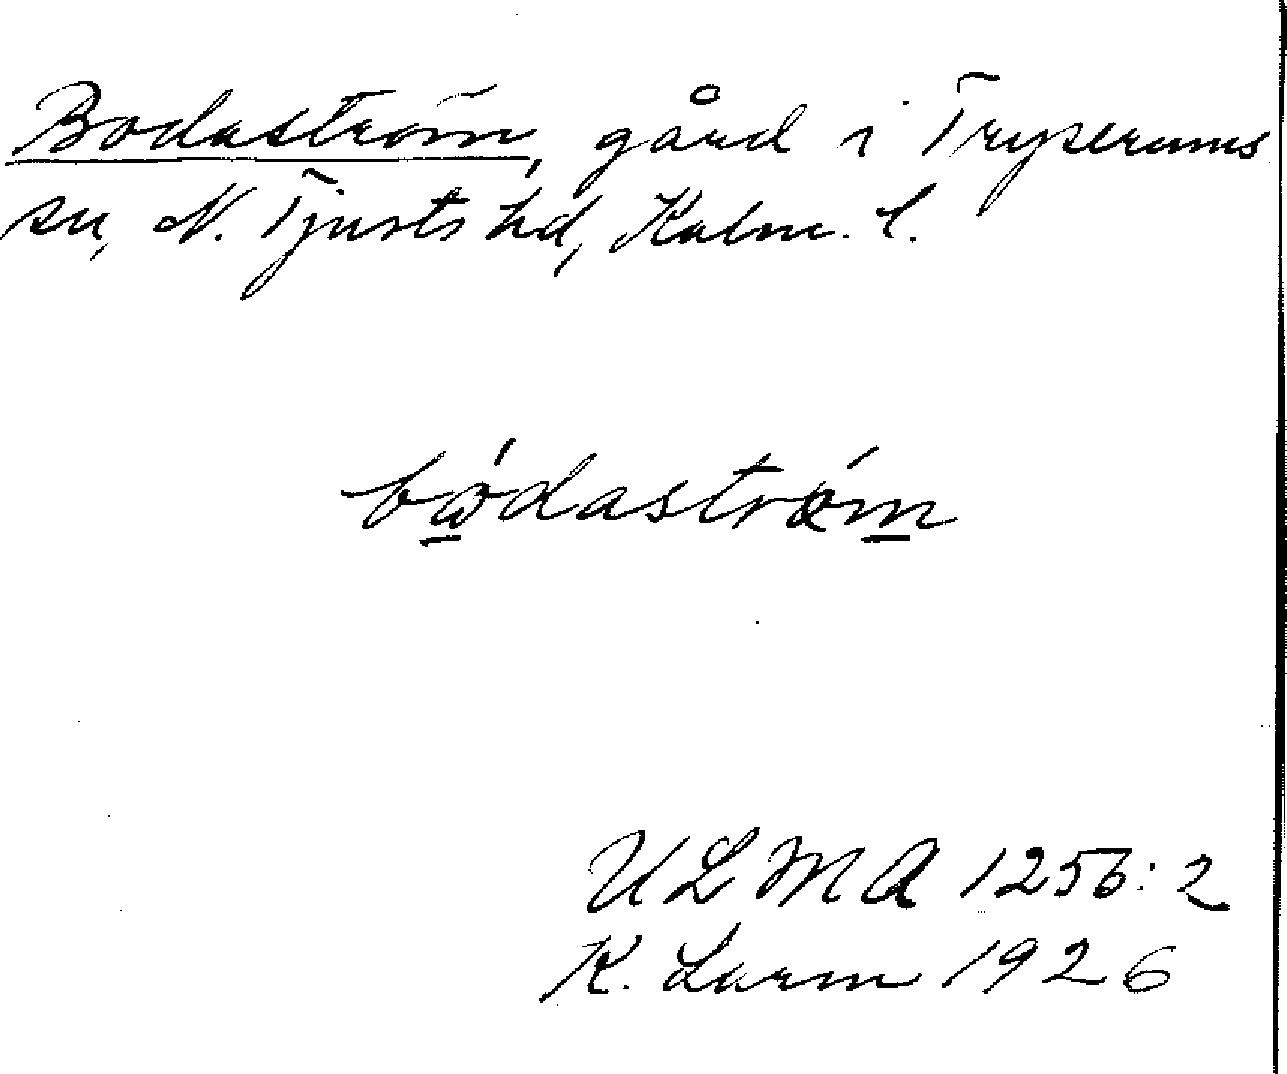 Bodaström, gård i Tryserums
sn, N. Tjusts hd, Kalm. l.
bødaström
ULMA 1256:2
K. Larm 1926